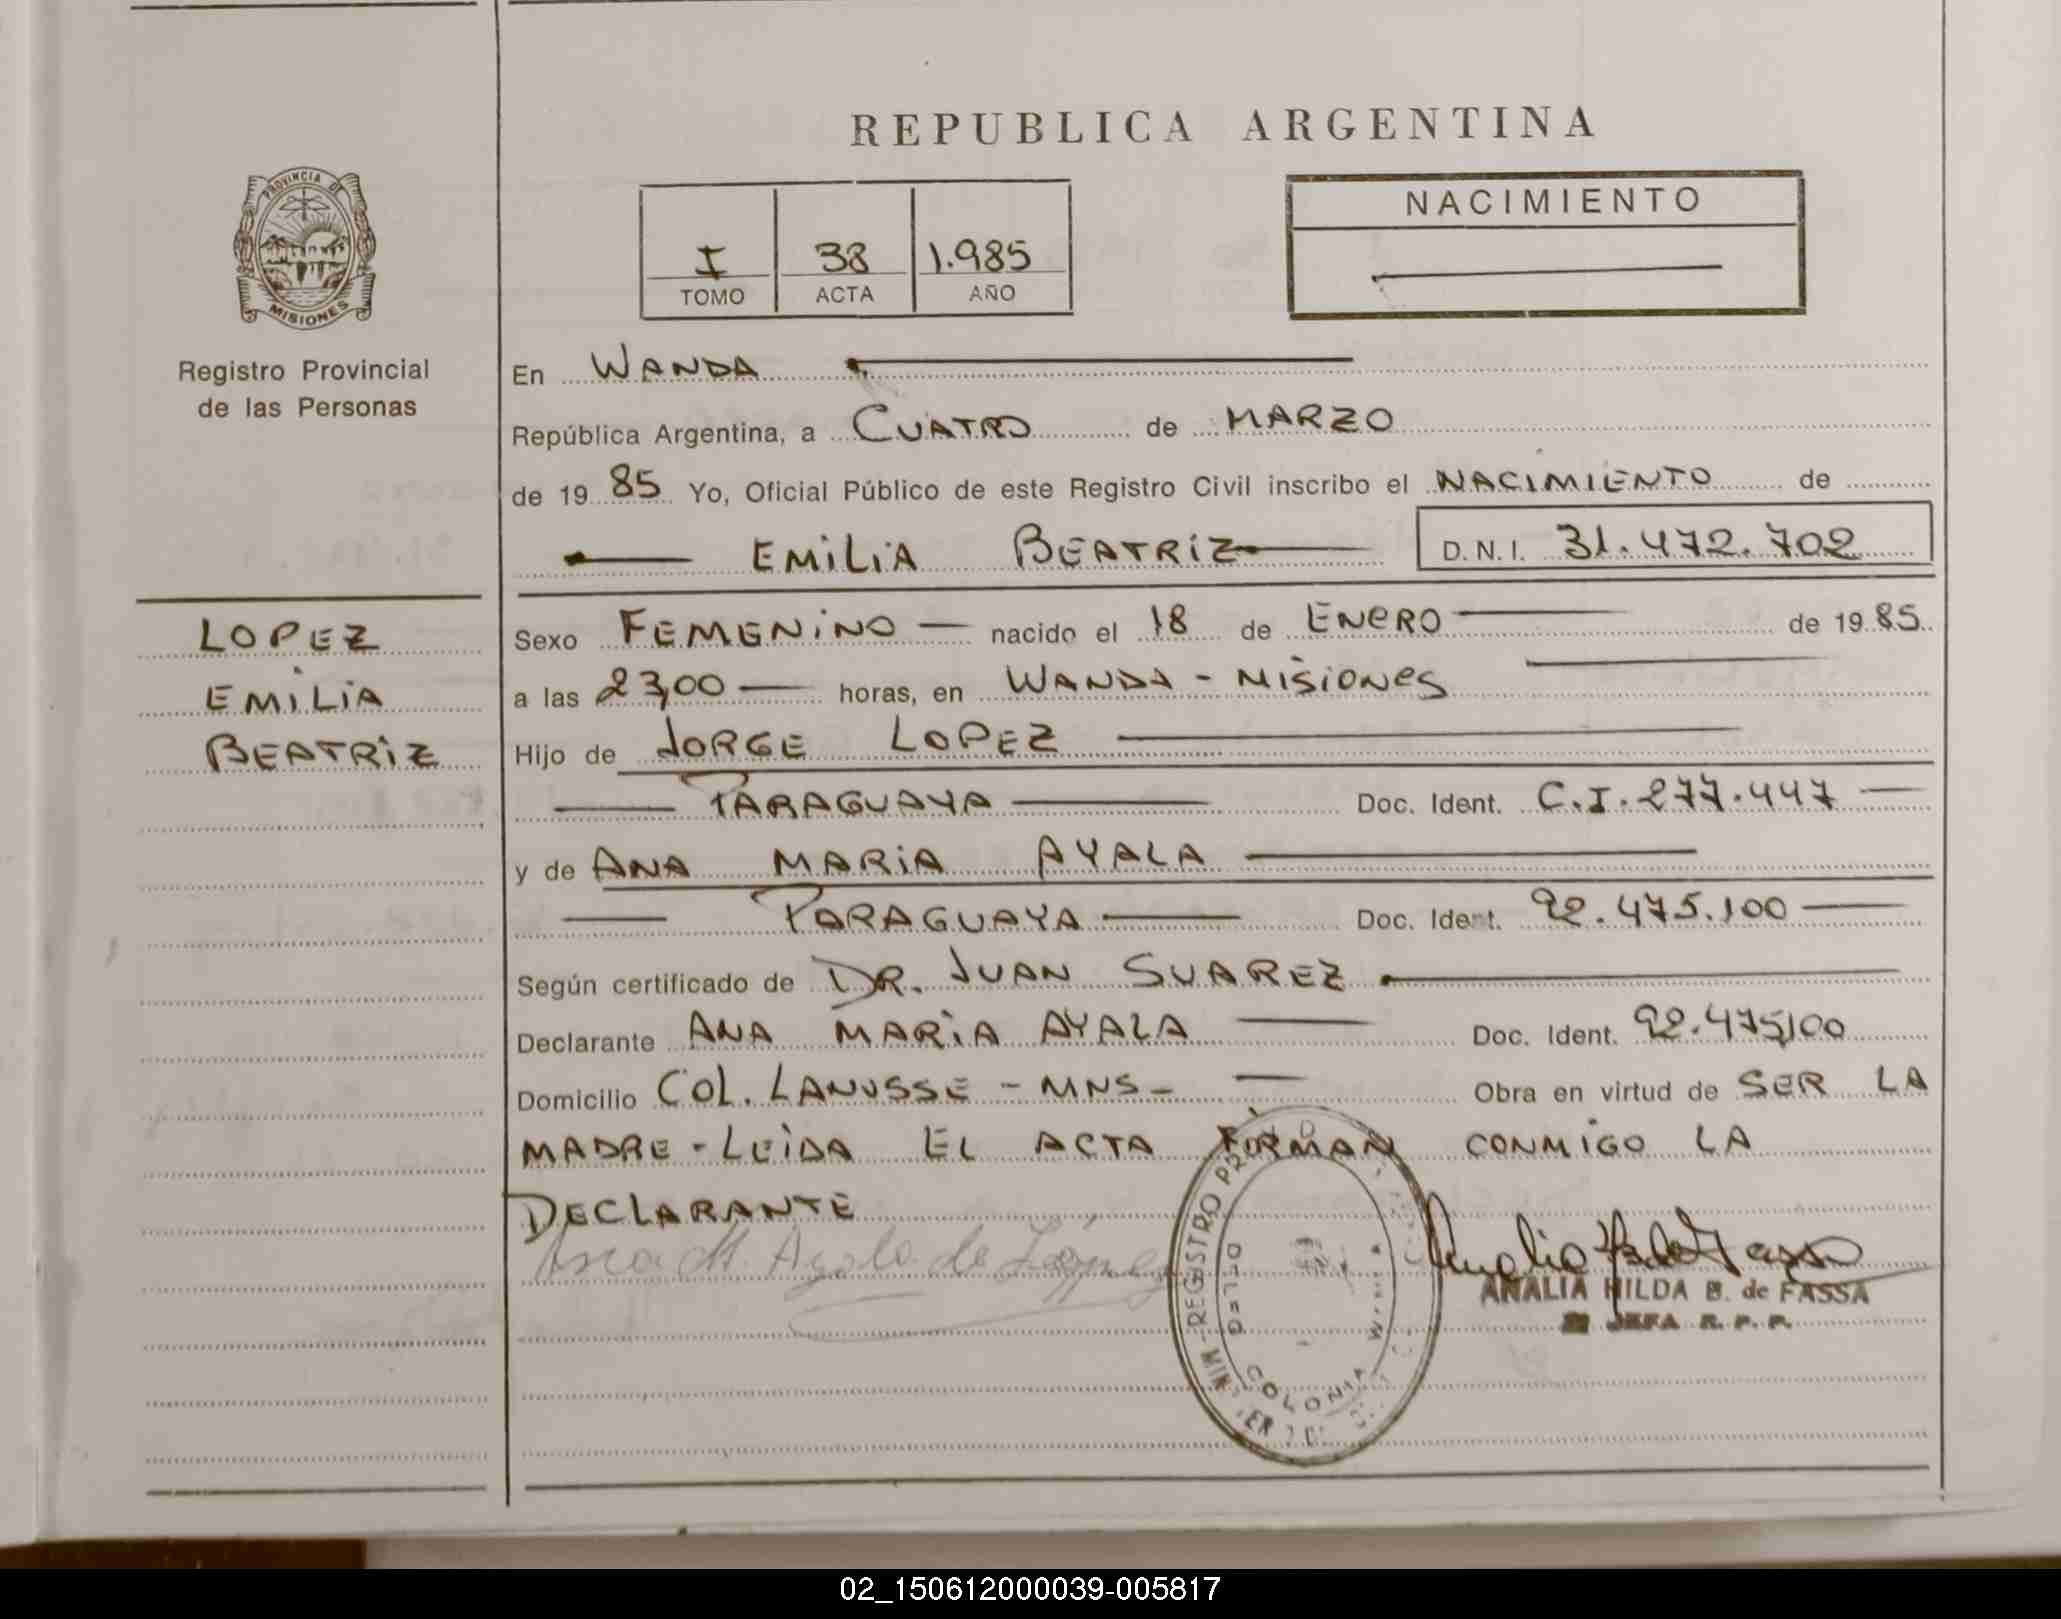 REPUBLICA ARGENTINA
PROVINCIA DE MISIONES
Registro Provincial
de las Personas
I 38 1.985
TOMO ACTA AÑO
NACIMIENTO
En WANDA
República Argentina, a CUATRO de MARZO
de 19 85 Yo, Oficial Público de este Registro Civil inscribo el NACIMIENTO de
EMILIA BEATRIZ D.N.I. 31.472.702
LOPEZ
EMILIA
BEATRIZ
Sexo FEMENINO nacido el 18 de ENERO de 19 85
a las 23,00 horas, en WANDA - MISIONES
Hijo de JORGE LOPEZ
PARAGUAYA Doc. Ident. C.I. 277.447
y de ANA MARIA AYALA
PARAGUAYA Doc. Ident. 92.475.100
Según certificado de DR. JUAN SUAREZ
Declarante ANA MARIA AYALA Doc. Ident. 92.475,100
Domicilio COL. LANUSSE - MNS - Obra en virtud de SER LA
MADRE - LEIDA EL ACTA FIRMAN CONMIGO LA
DECLARANTE
Ana M. Ayala de López
REGISTRO COLONIA
ANALIA HILDA B. de FASSA
JEFA R. P. P.
02_150612000039-005817